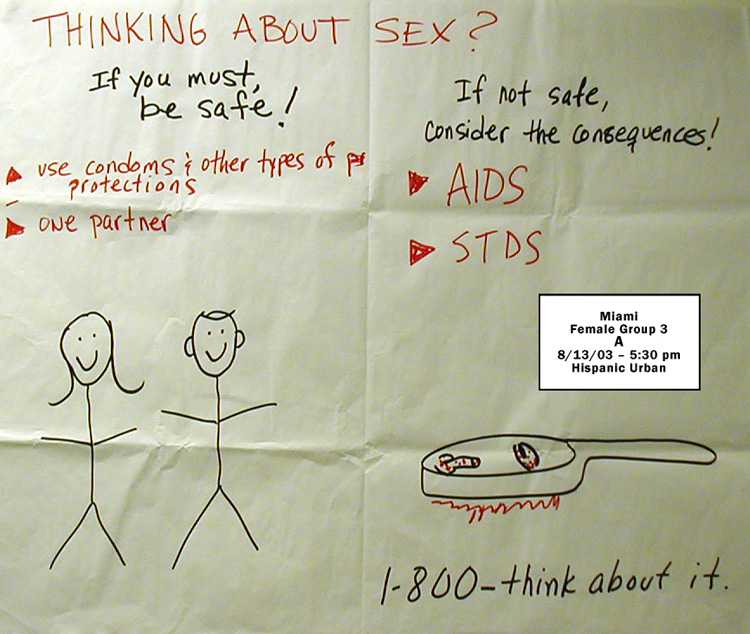 THINKING ABOUT SEX?
If you must,
be safe!
use condoms & other types of pr
protections
one partner
If not safe,
consider the consequences!
AIDS
STDS
Miami
Female Group 3
A
8/13/03 – 5:30 pm
Hispanic Urban
1-800-think about it.